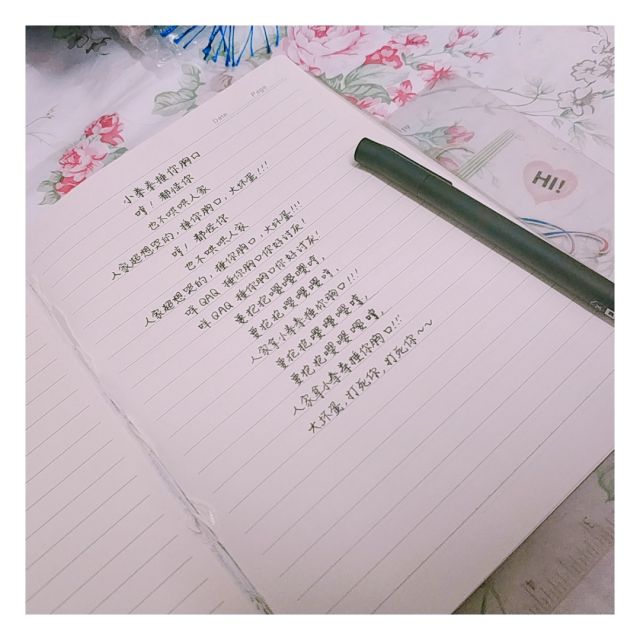 Date
Page
小拳拳捶你胸口
哼！都怪你
也不哄哄人家
人家超想哭的，捶你胸口，大坏蛋!!!
哼！都怪你
也不哄哄人家
人家超想哭的，捶你胸口，大坏蛋!!!
咩QAQ 捶你胸口你好讨厌!
咩QAQ 捶你胸口你好讨厌!
要抱抱嘤嘤嘤哼，
要抱抱嘤嘤嘤哼，
人家拿小拳拳捶你胸口!!!
要抱抱嘤嘤嘤哼，
要抱抱嘤嘤嘤哼，
人家拿小拳拳捶你胸口!!!
大坏蛋，打死你，打死你~~
HI!